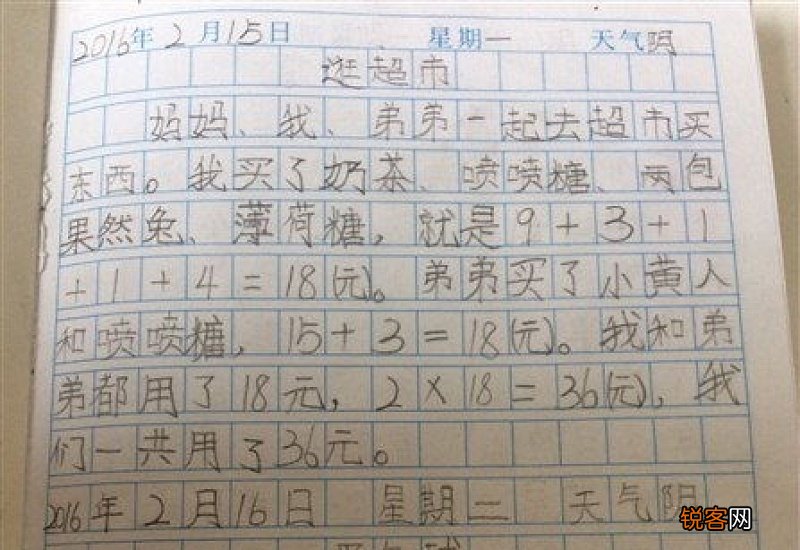 2016年2月15日 星期一 天气阴
逛超市
妈妈、我、弟弟一起去超市买
东西。我买了奶茶、喷喷糖、两包
果然兔、薄荷糖,就是9+3+1
+1+4=18(元)。弟弟买了小黄人
和喷喷糖,15+3=18(元)。我和弟
弟都用了18元,2×18=36(元),我
们一共用了36元。
2016年2月16日 星期二 天气阴
锐客网